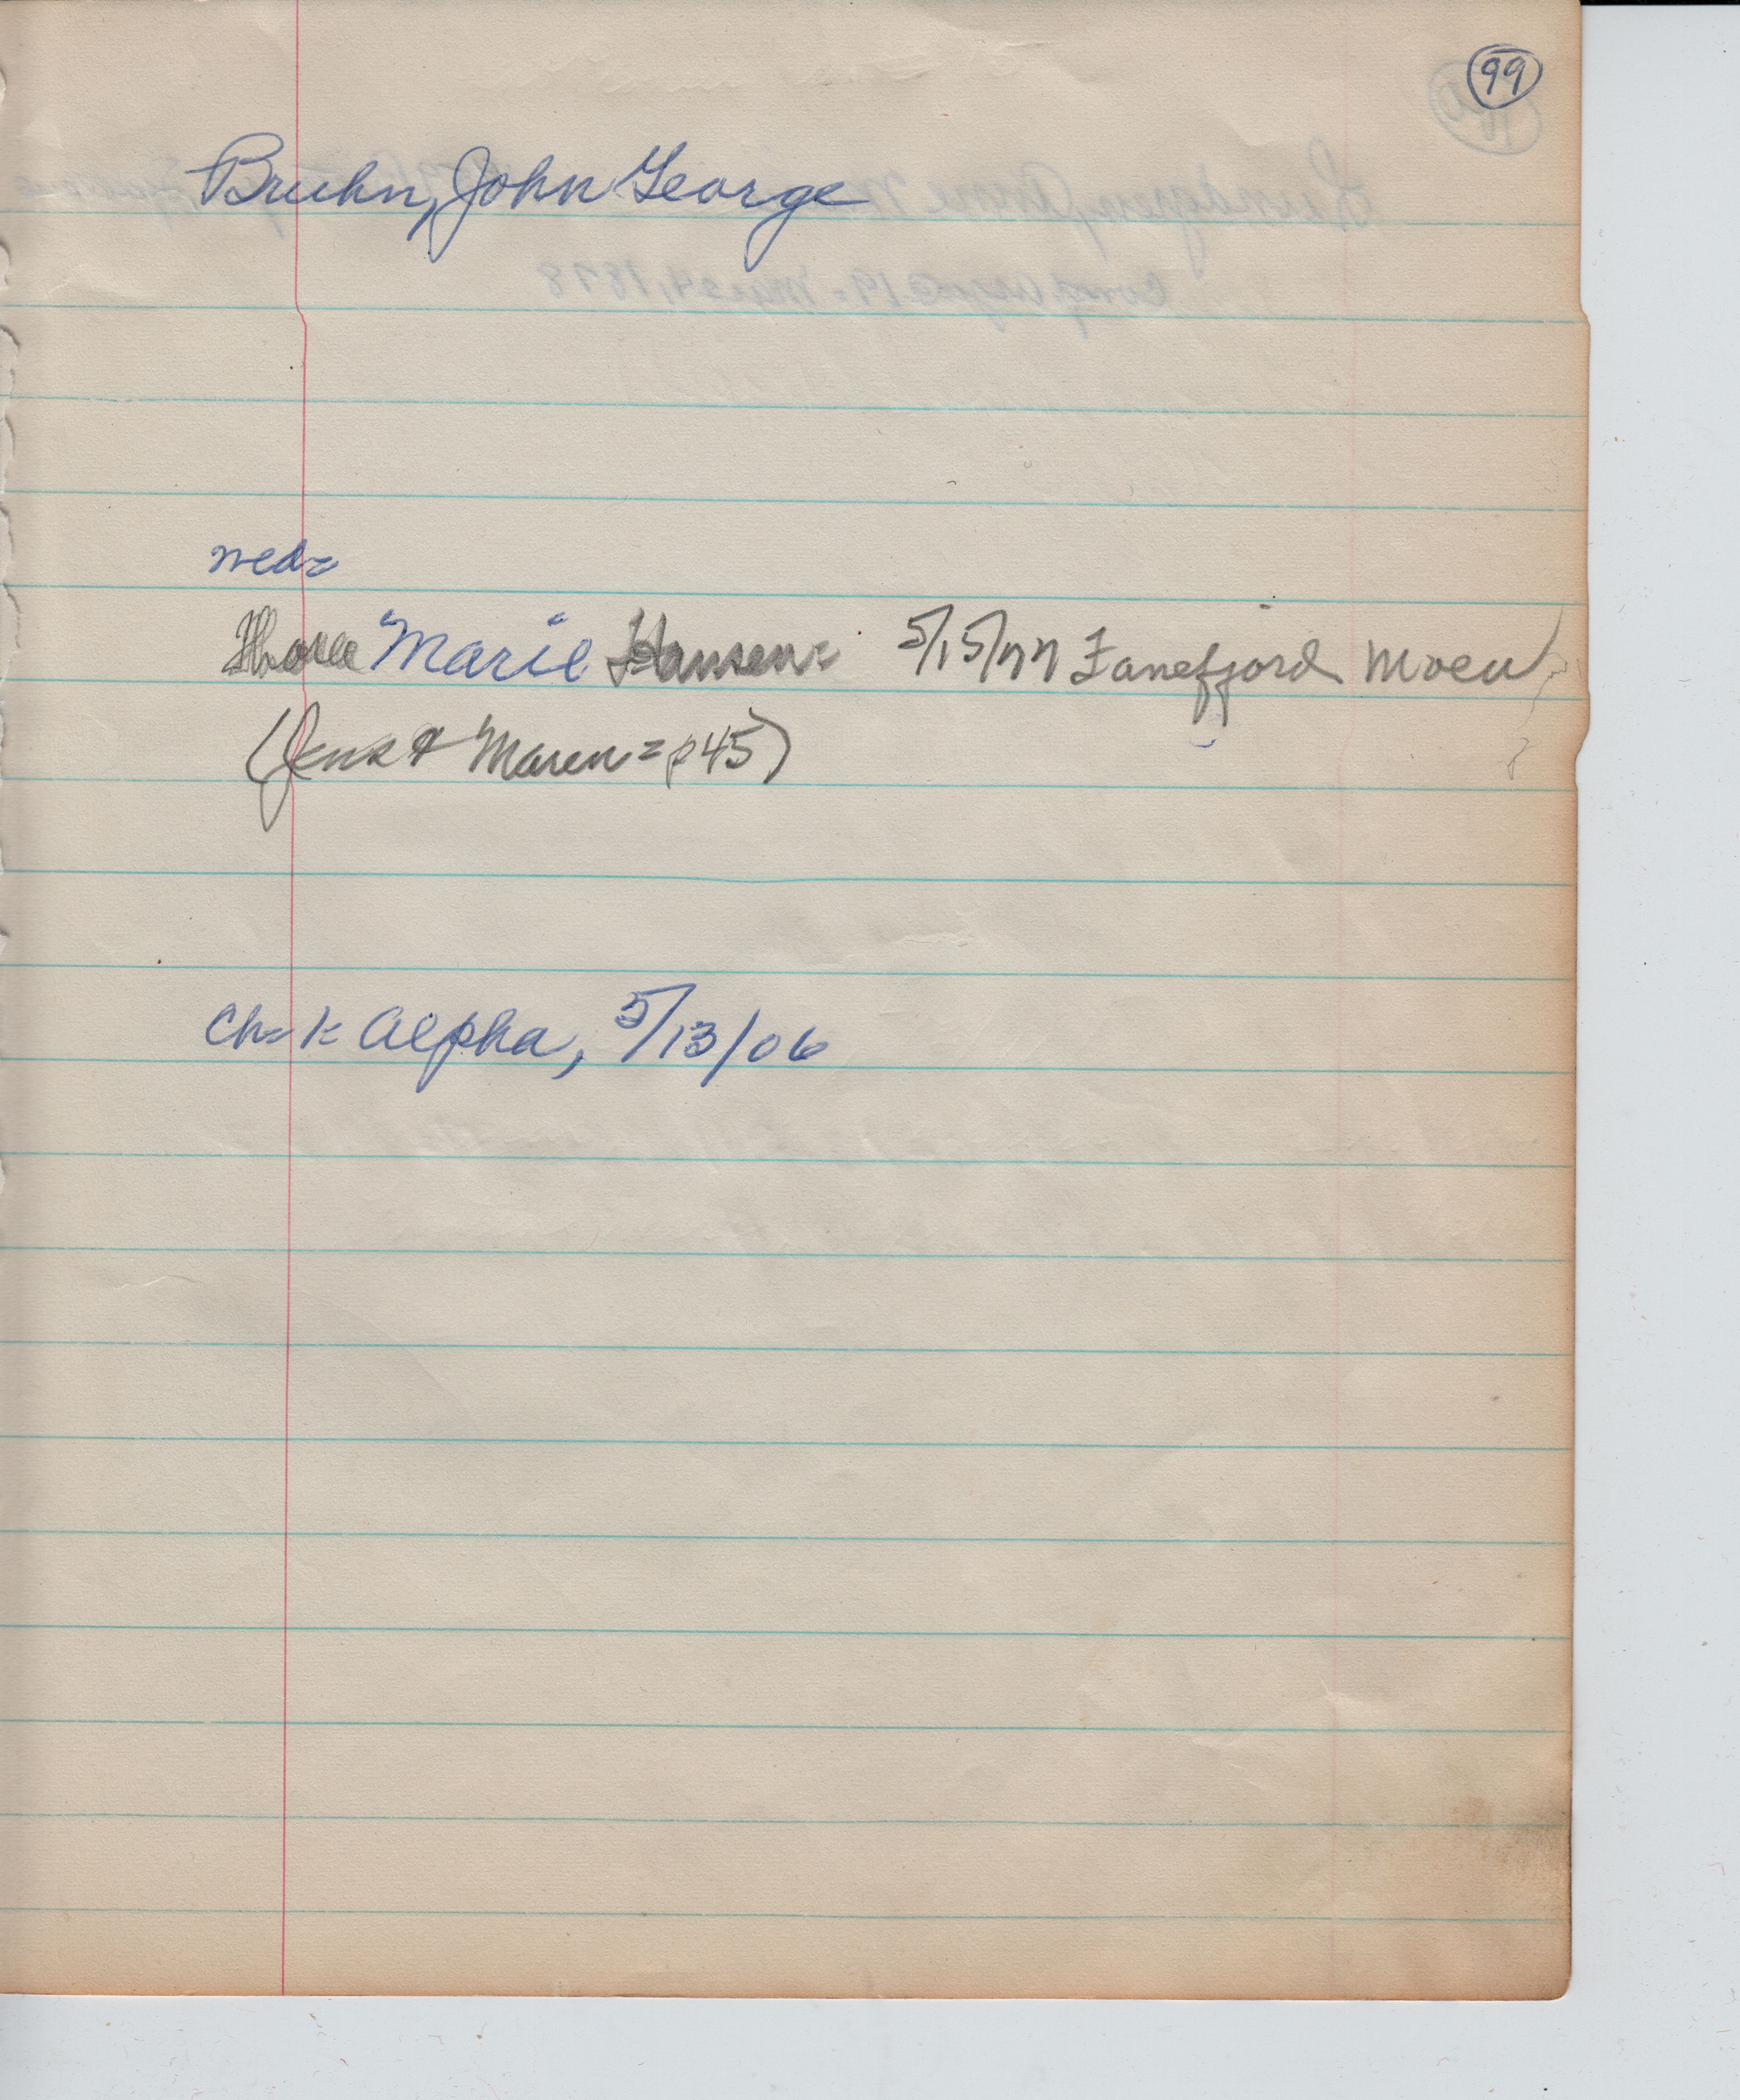 99
Bruhn, John George
wed=
Thora Marie Hansen= 5/15/77 Fanefjord Moen
(Jens & Maren = p45)
Ch= 1= Alpha, 5/13/06